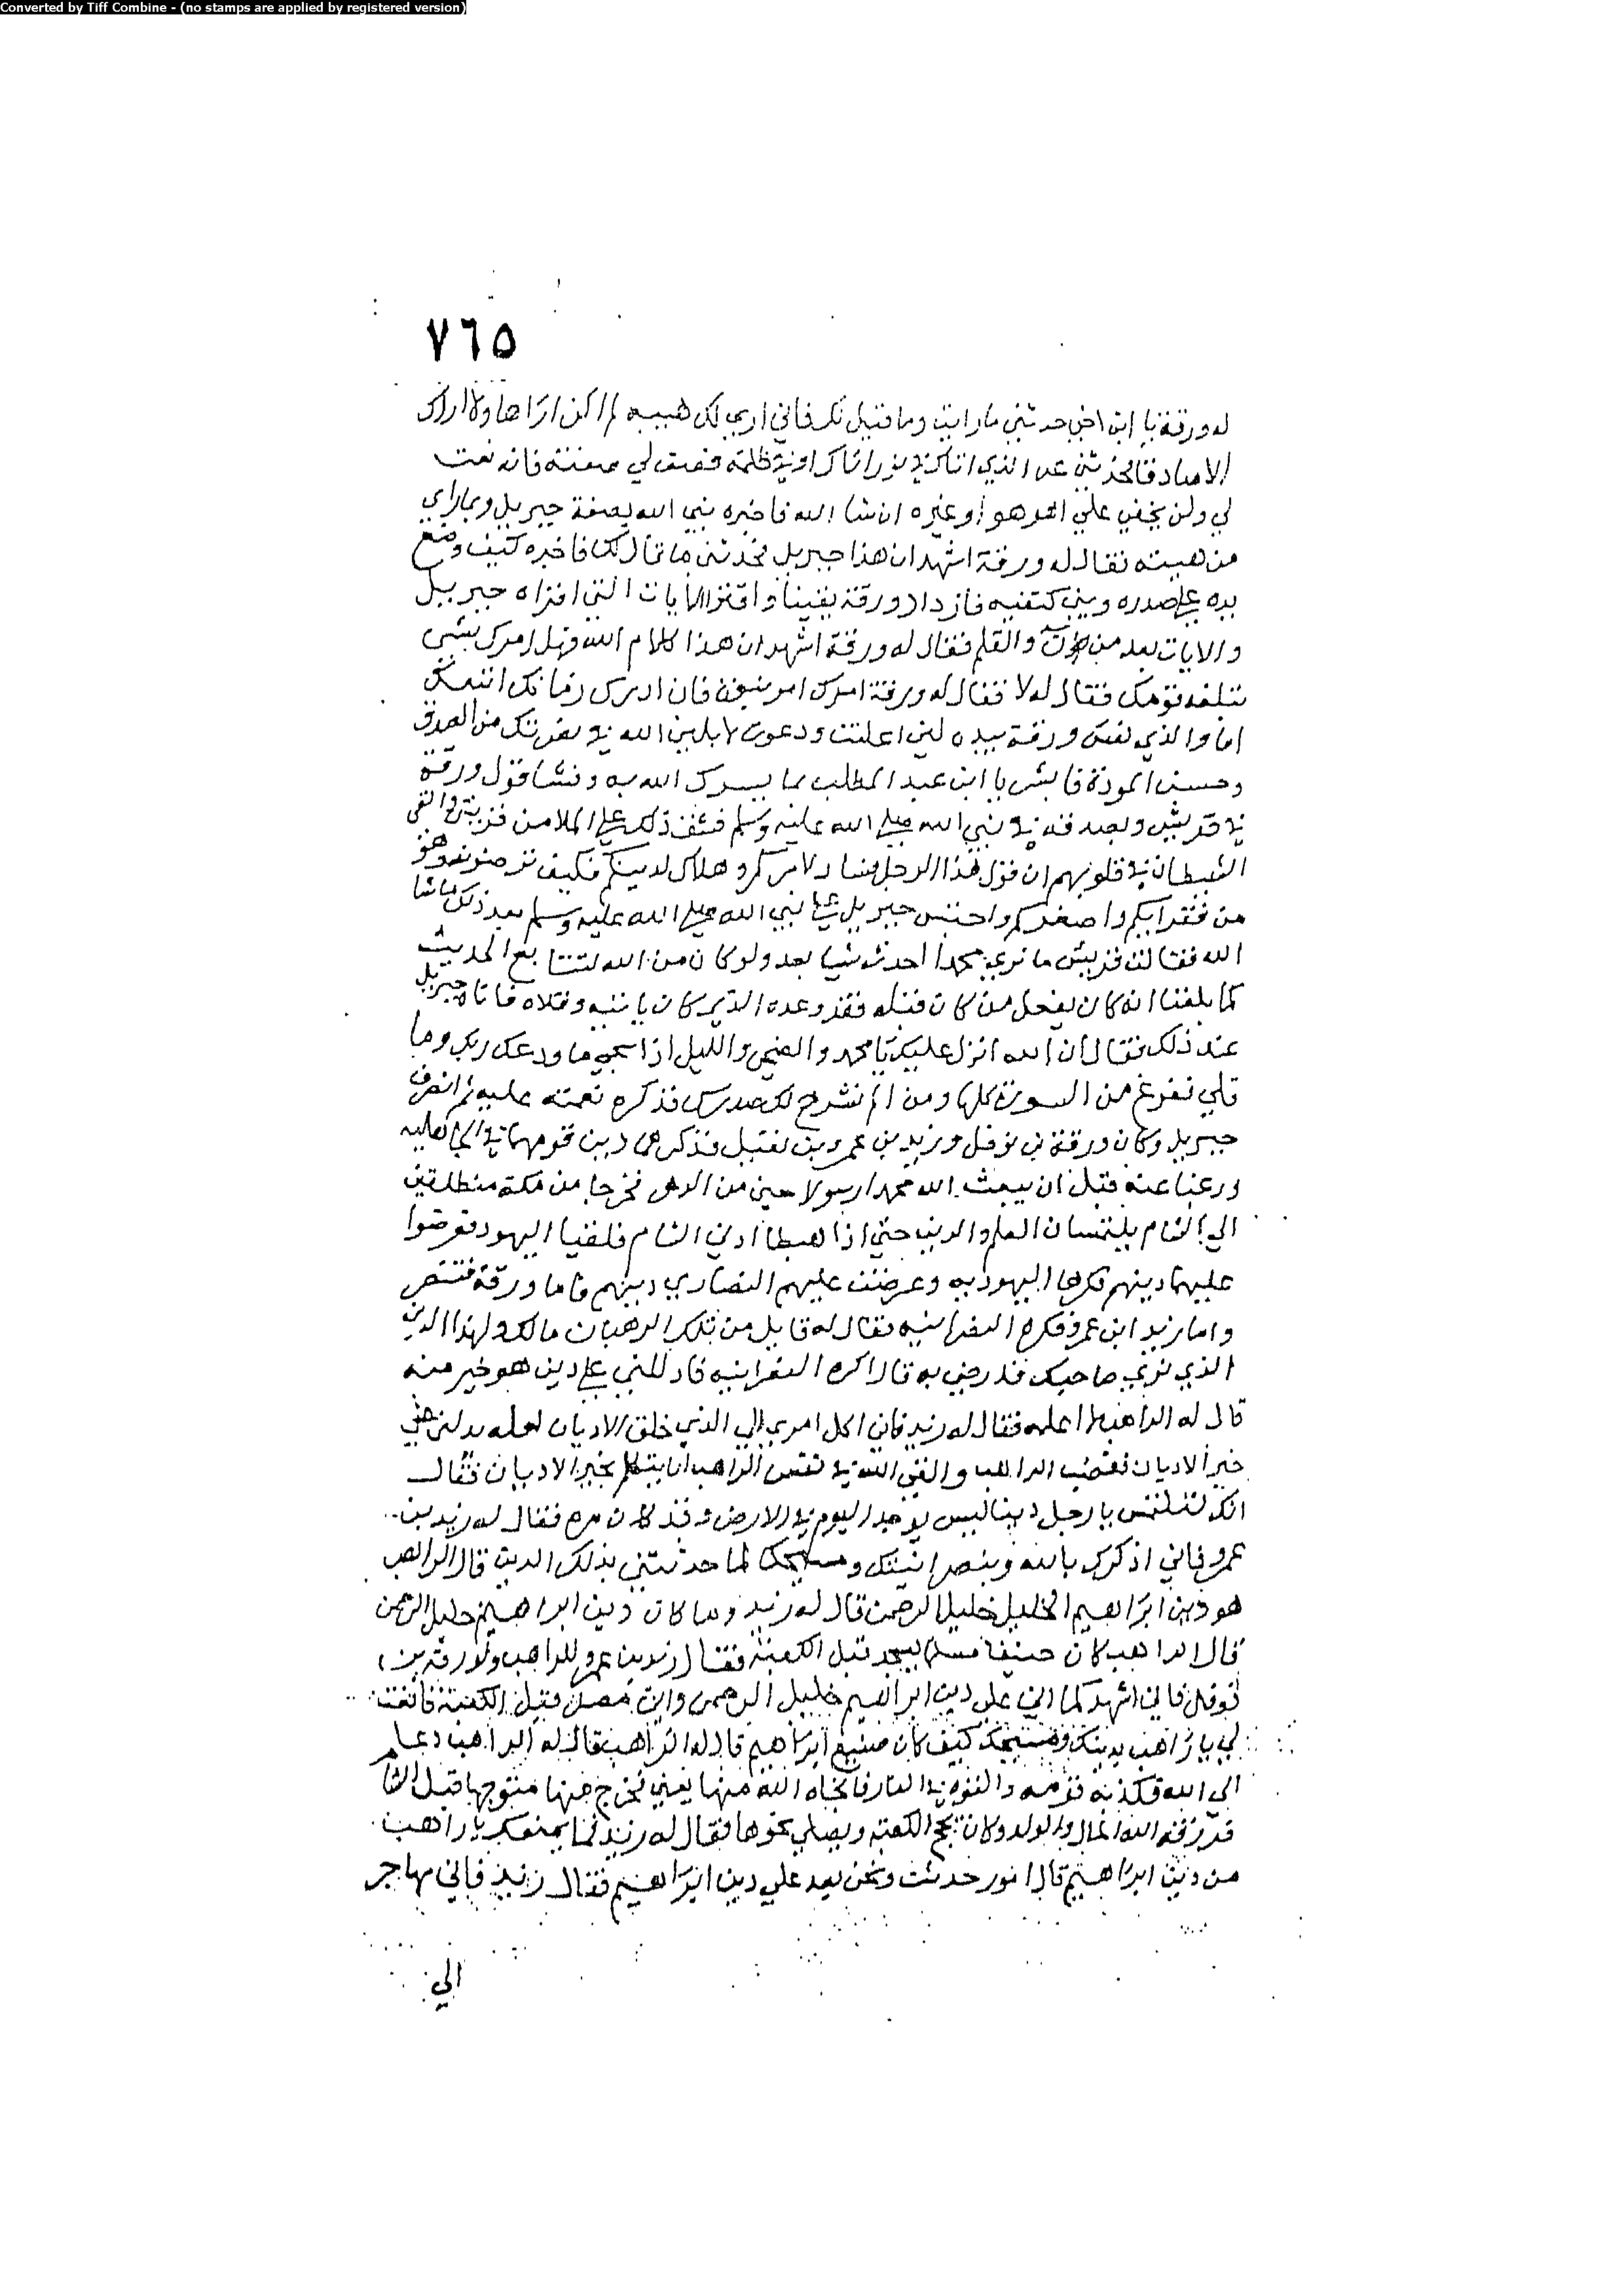 Converted by Tiff Combine - (no stamps are applied by registered version)
٧٦٥
له ورقة يا ابن اخي حدثني ما رايت وما قيل لك فاني اري لك هيبه لم اكن اراها ولا اراك
الا صادقا فحدثني عن الذي اتاك في نور اتاك او في ظلمة فصف لي صفته فانه نعت
لي ولن يخفي علي اهو هو او غيره ان شا الله فاخبره نبي الله بصفة جبريل وبما راي
من هيبته فقال له ورقة اشهد ان هذا جبريل فحدثني ما قال لك فاخبره كيف وضع
يده علي صدره وبين كتفيه فازداد ورقة يقينا واقترا الايات التي اقراه جبريل
والايات بعد من ن والقلم فقال له ورقة اشهد ان هذا كلام الله فهل امرك بشي
تبلغه قومك فقال له لا فقال له ورقة امرك امر نبوة فان ادرك زمانك اتبعك
اما والذي نفس ورقة بيده لين اعلنت ودعوت لابلين الله في نصرتك من الصدق
وحسن الموذة فابشر يا ابن عبد المطلب بما يسرك الله به وفشا قول ورقة
في قريش وبصدقه في نبي الله صلي الله عليه وسلم فشق ذلك علي الملا من قريش والقي
الشيطان في قلوبهم ان قول هذا الرجل فساد لامركم وهلاك لدينكم فكيف ترضونه وهو
من فقرايكم واصغركم واحتبس جبريل علي نبي الله صلي الله عليه وسلم بعد ذلك ما شا
الله فقالت قريش ما نري محمدا احدث شيا بعد ولو كان من الله لتتابع الحديث
كما بلغنا انه كان يفعل من كان قبله فقد وعده الذي كان ياتيه وقلاه فاتاه جبريل
عند ذلك فقال ان الله انزل عليك يا محمد والضحي والليل اذا سجي ما ودعك ربك وما
قلي ففرغ من السورة كلها ومن الم نشرح لك صدرك فذكره نعمته عليه ثم انصرف
جبريل وكان ورقة بن نوفل وزيد بن عمرو بن نفيل فذكرها دين قومهما في الجاهليه
ورغبا عنه قبل ان يبعث الله محمدا رسولا حين من الدهر فخرجا من مكة منطلقين
الي الشام يلتمسان العلم والدين حتي اذا هبطا ادني الشام فلقيا اليهود فعرضوا
عليهما دينهم فكرها اليهوديه وعرضت عليهم النصاري دينهم فاما ورقة فتنصر
واما زيد ابن عمرو فكره النصرانيه فقال له قايل من تلك الرهبان مالك ولهذا الدين
الذي نري صاحبك قد رضي به قال اكره النصرانيه فادللني علي دين هو خير منه
قال له الراهب لا اعلمه فقال له زيد فاني اكل امري الي الذي خلق الاديان لعله يدلني حتي
خير الاديان فغضب الراهب والقي الله في نفس الراهب ان يتكلم بخير الاديان فقال
انك لتلتمس يا رجل دينا ليس يوجد اليوم في الارض وقد كان مره فقال له زيد بن
عمرو فاني اذكرك بالله وبنصرانيتك ومسيحك لما حدثتني بذلك الدين قال الراهب
هو دين ابراهيم الخليل خليل الرحمن قال له زيد وما كان دين ابراهيم خليل الرحمن
قال الراهب كان حنيفا مسلما يسجد قبل الكعبة فقال زيد بن عمرو للراهب ولورقة بن
نوفل فاني اشهدكما اني علي دين ابراهيم خليل الرحمن واني مصل قبل الكعبة فانعت
لي يا راهب بدينك ومسيحك كيف كان صنيع ابراهيم قال له الراهب فقال له الراهب دعا
الي الله فكذبه قومه والقوه في النار فانجاه الله منها يعني فخرج منها متوجها قبل الشام
قد رزقه الله المال والولد وكان يحج الكعبه ويصلي نحوها فقال له زيد فما يمنعك يا راهب
من دين ابراهيم قال امور حدثت ونحن بعد علي دين ابراهيم فقال زيد فاني مهاجر
الي